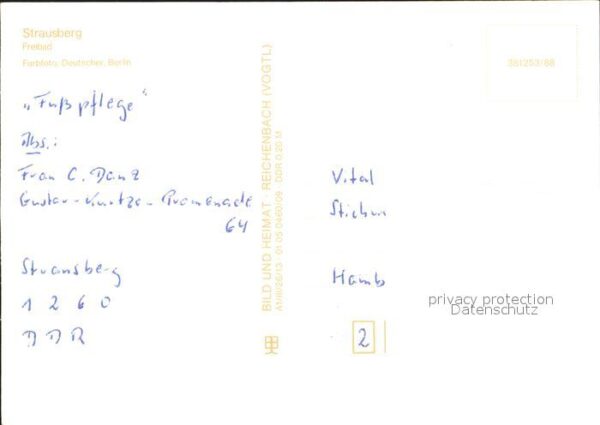 Strausberg
Freibad
Farbfoto: Deutscher, Berlin
381253/88
„Fußpflege"
Abs.:
Frau C. Danz
Gustav-Kurtze-Promenade
64
Strausberg
1260
DDR
BILD UND HEIMAT · REICHENBACH (VOGTL)
A1/III/26/13 01 05 0460/09 DDR 0,20 M
Vital
Hamb
2
privacy protection
Datenschutz